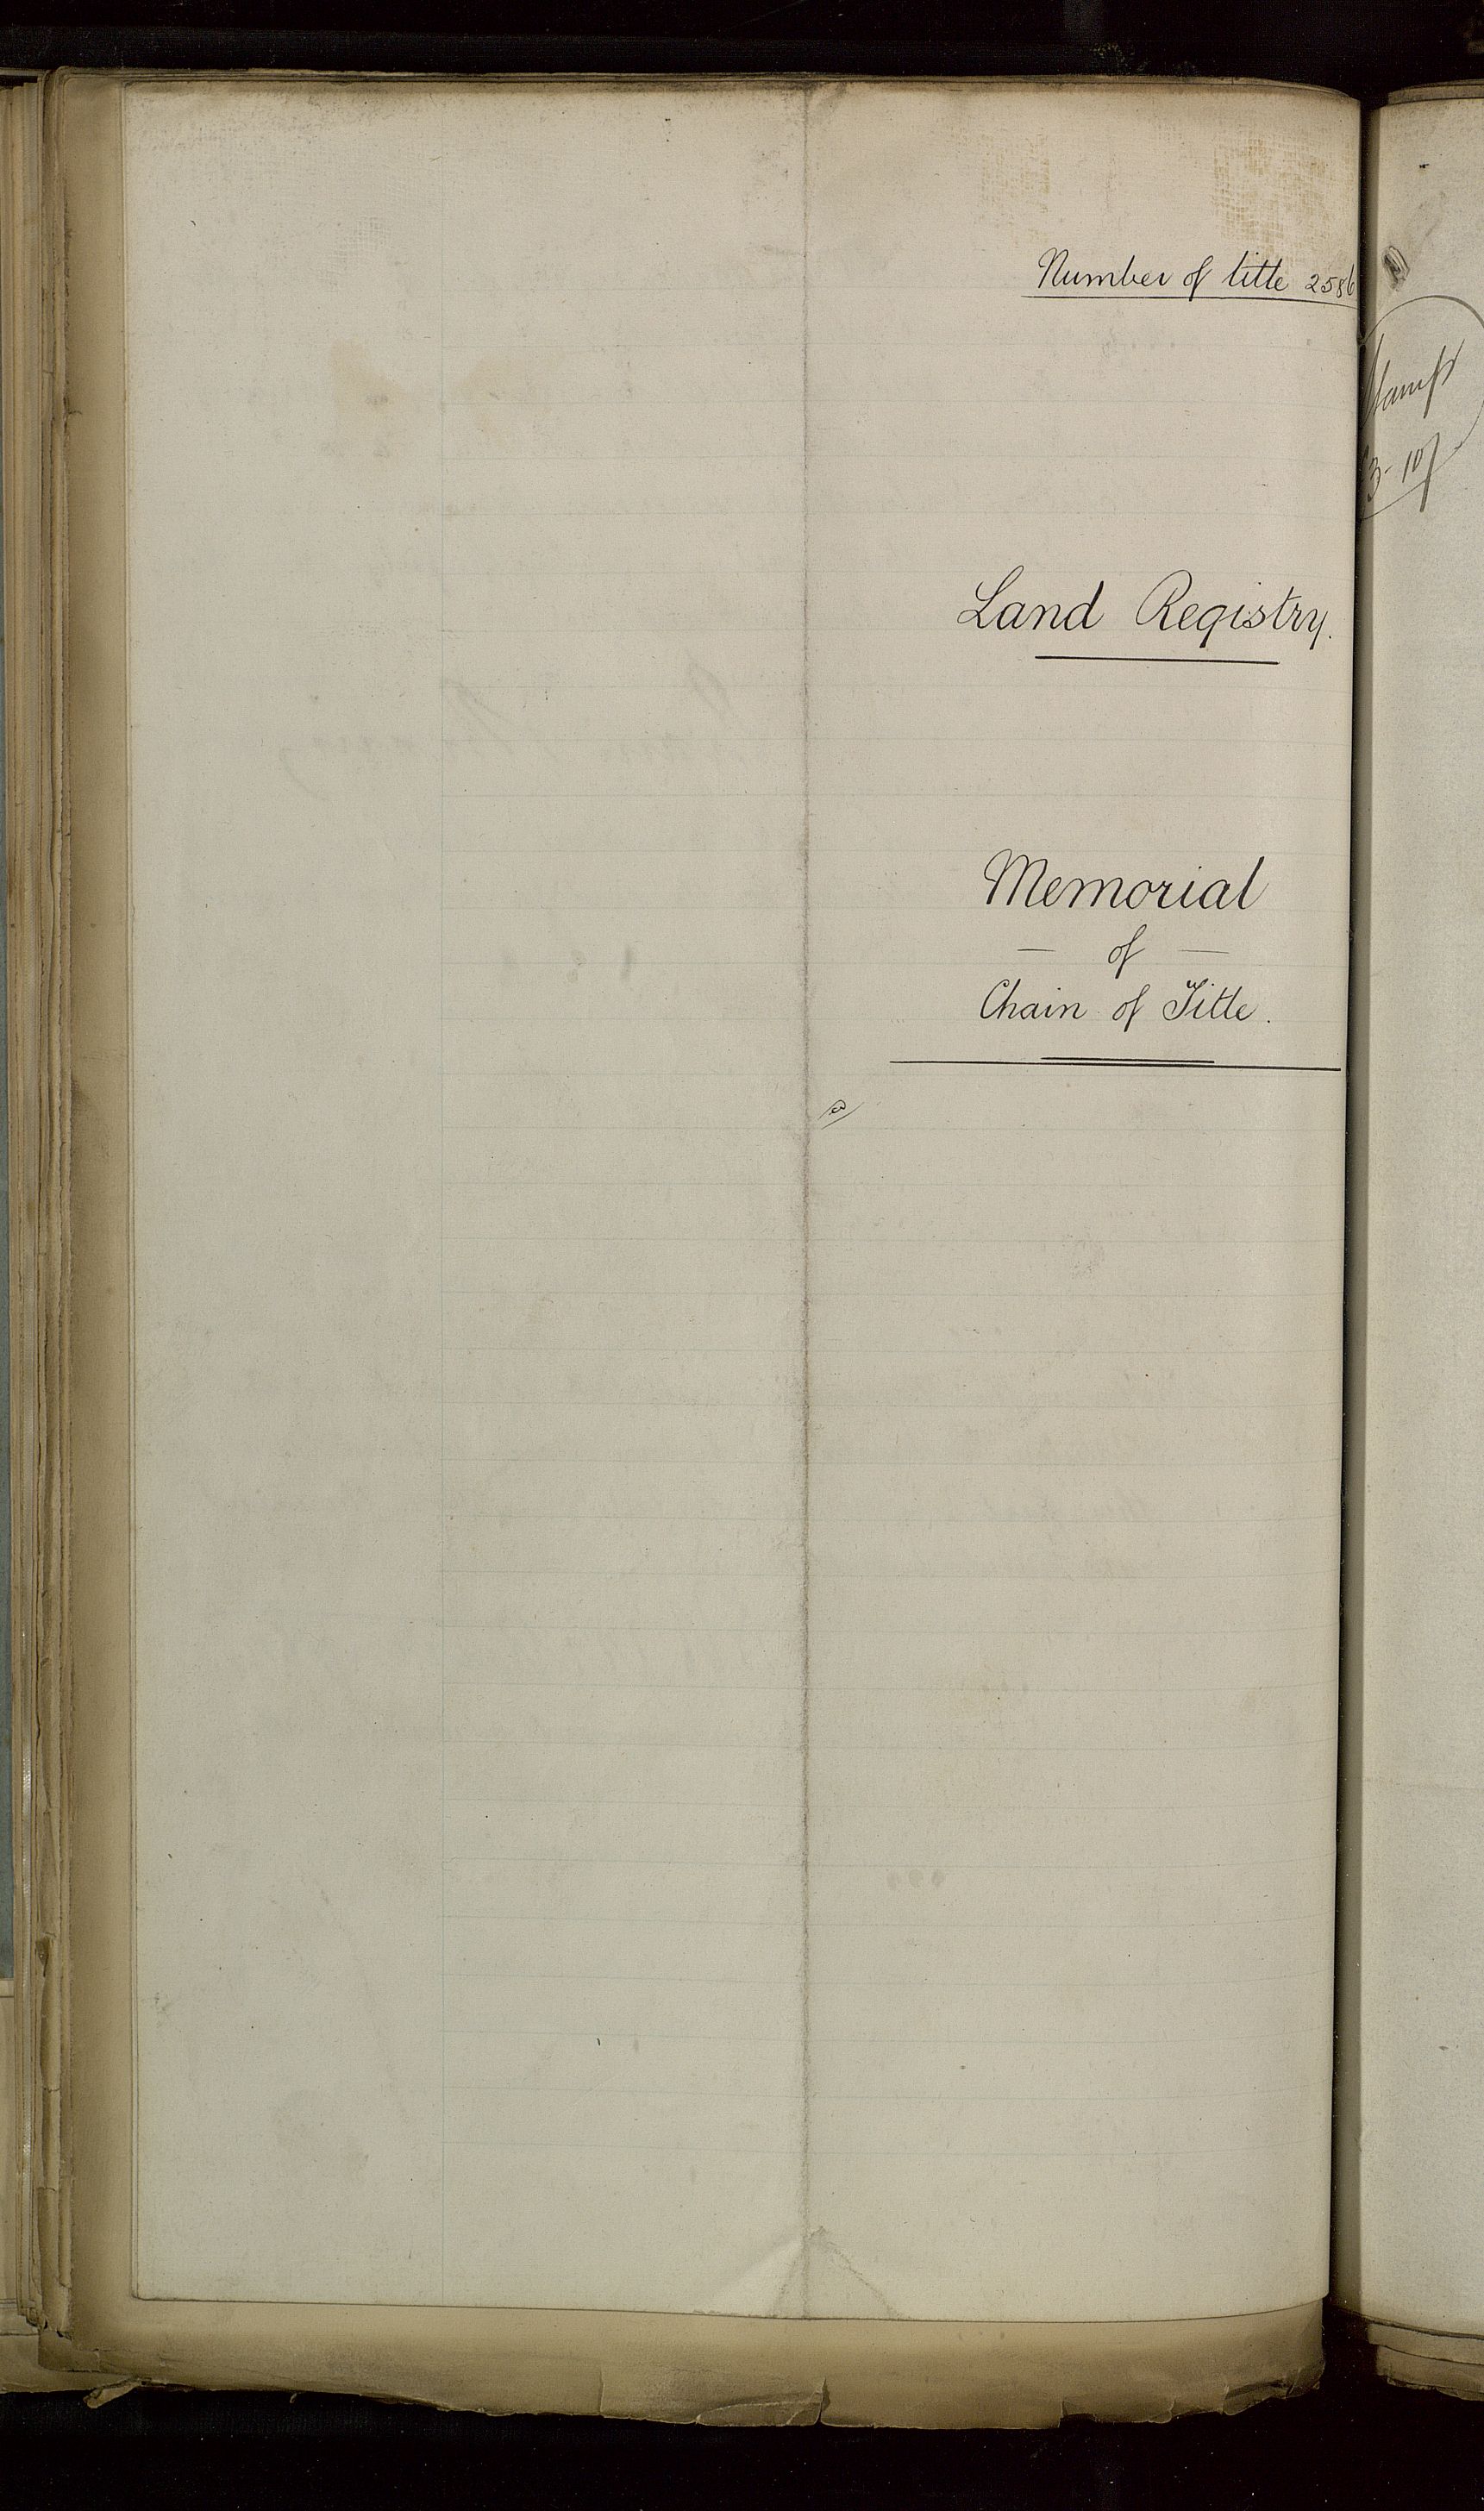 Number of title 2586
Land Registry.
Memorial
— of —
Chain of Title.